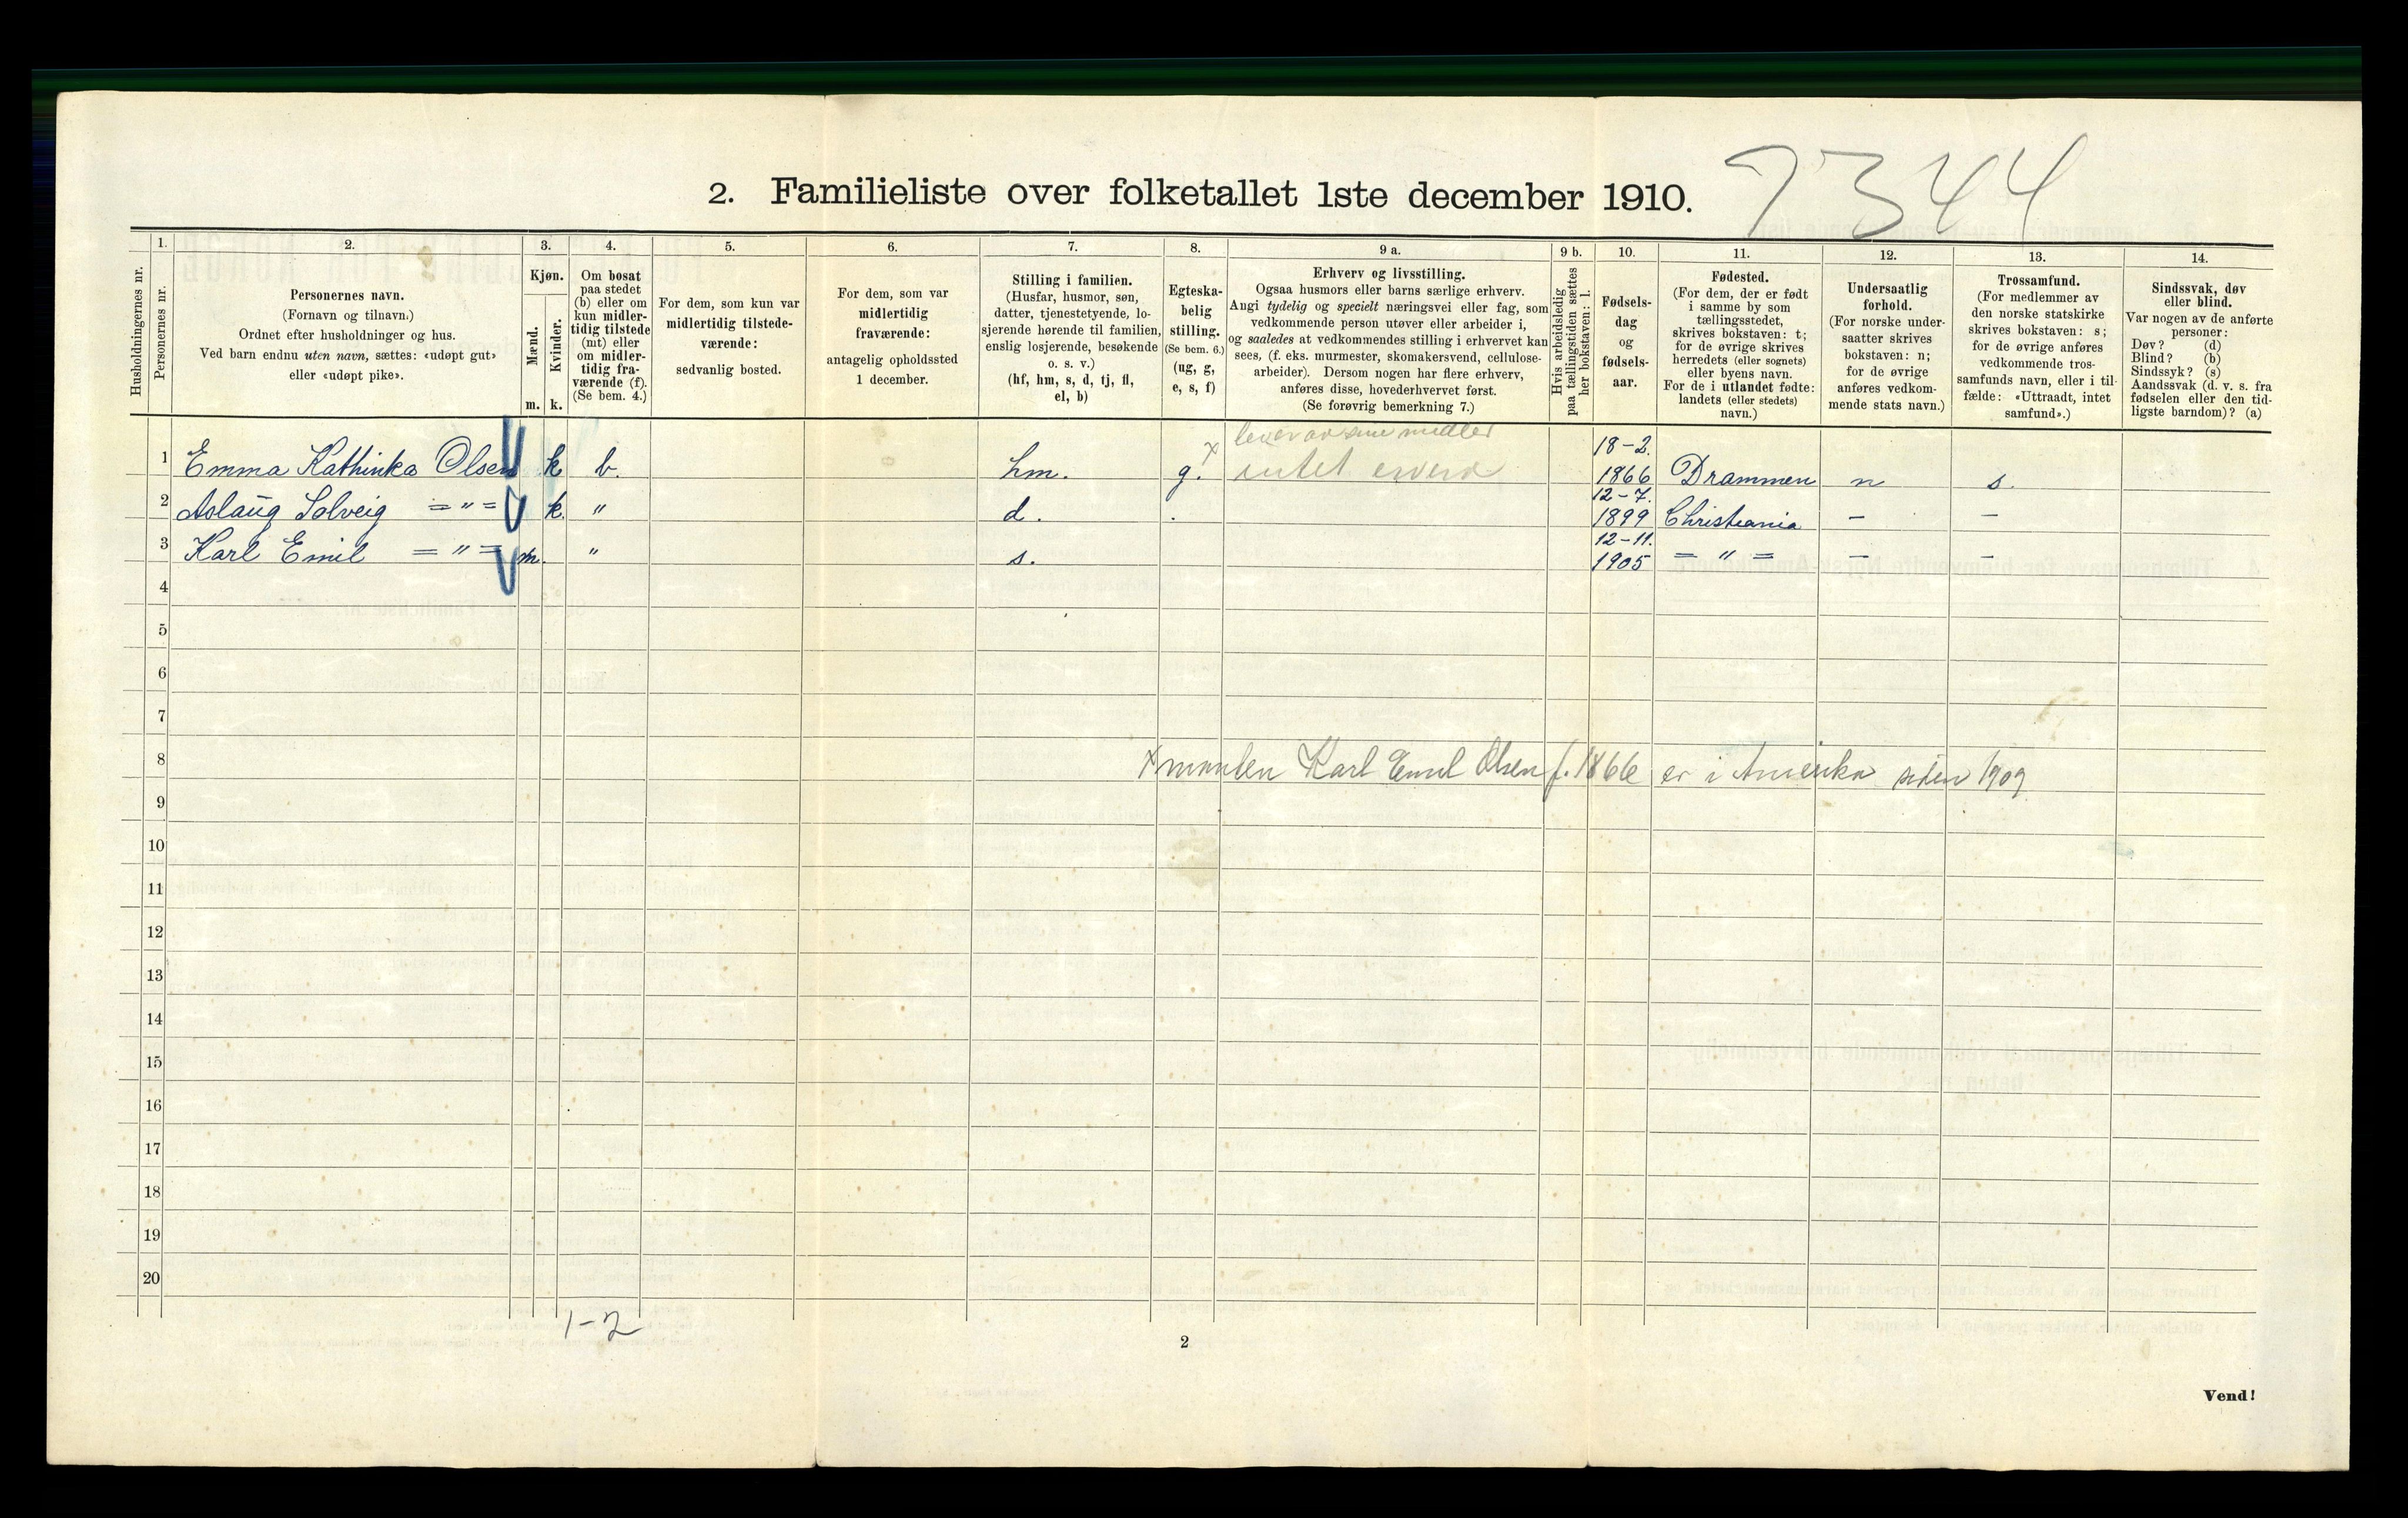 7344
2. Familieliste over folketallet 1ste december 1910.
Husholdningernes nr.
1.
Personernes nr.
2.
Personernes navn.
(Fornavn og tilnavn.)
Ordnet efter husholdninger og hus.
Ved barn endnu uten navn, sættes: «udøpt gut»
eller «udøpt pike».
3.
Kjøn.
Mænd.
m.
Kvinder.
k.
4.
Om bosat
paa stedet
(b) eller om
kun midler-
tidig tilstede
(mt) eller
om midler-
tidig fra-
værende (f).
(Se bem. 4.)
5.
For dem, som kun var
midlertidig tilstede-
værende:
sedvanlig bosted.
6.
For dem, som var
midlertidig
fraværende:
antagelig opholdssted
1 december.
7.
Stilling i familien.
(Husfar, husmor, søn,
datter, tjenestetyende, lo-
sjerende hørende til familien,
enslig losjerende, besøkende
o. s. v.)
(hf, hm, s, d, tj, fl,
el, b)
8.
Egteska-
belig
stilling.
(Se bem. 6.)
(ug, g,
e, s, f)
9 a.
Erhverv og livsstilling.
Ogsaa husmors eller barns særlige erhverv.
Angi tydelig og specielt næringsvei eller fag, som
vedkommende person utøver eller arbeider i,
og saaledes at vedkommendes stilling i erhvervet kan
sees, (f. eks. murmester, skomakersvend, cellulose-
arbeider). Dersom nogen har flere erhverv,
anføres disse, hovederhvervet først.
(Se forøvrig bemerkning 7.)
9 b.
Hvis arbeidsledig
paa tællingstiden sættes
her bokstaven: l.
10.
Fødsels-
dag
og
fødsels-
aar.
11.
Fødested.
(For dem, der er født
i samme by som
tællingsstedet,
skrives bokstaven: t;
for de øvrige skrives
herredets (eller sognets)
eller byens navn.
For de i utlandet fødte:
landets (eller stedets)
navn.)
12.
Undersaatlig
forhold.
(For norske under-
saatter skrives
bokstaven: n;
for de øvrige
anføres vedkom-
mende stats navn.)
13.
Trossamfund.
(For medlemmer av
den norske statskirke
skrives bokstaven: s;
for de øvrige anføres
vedkommende tros-
samfunds navn, eller i til-
fælde: «Uttraadt, intet
samfund».)
14.
Sindssvak, døv
eller blind.
Var nogen av de anførte
personer:
Døv? (d)
Blind? (b)
Sindssyk? (s)
Aandssvak (d. v. s. fra
fødselen eller den tid-
ligste barndom)? (a)
lever av sine midler
1 Emma Kathinka Olsen k b. hm. g. x intet erverv 18-2. 1866 Drammen n s.
2 Aslaug Solveig = " = k. " d. 12-7. 1899 Christiania - -
3 Karl Emil = " = m. " s. 12-11. 1905 = " = - -
4
5
6
7
8 x manden Karl Emil Olsen f. 1866 er i Amerika siden 1909
9
10
11
12
13
14
15
16
17
18
19
20
1-2
2
Vend!